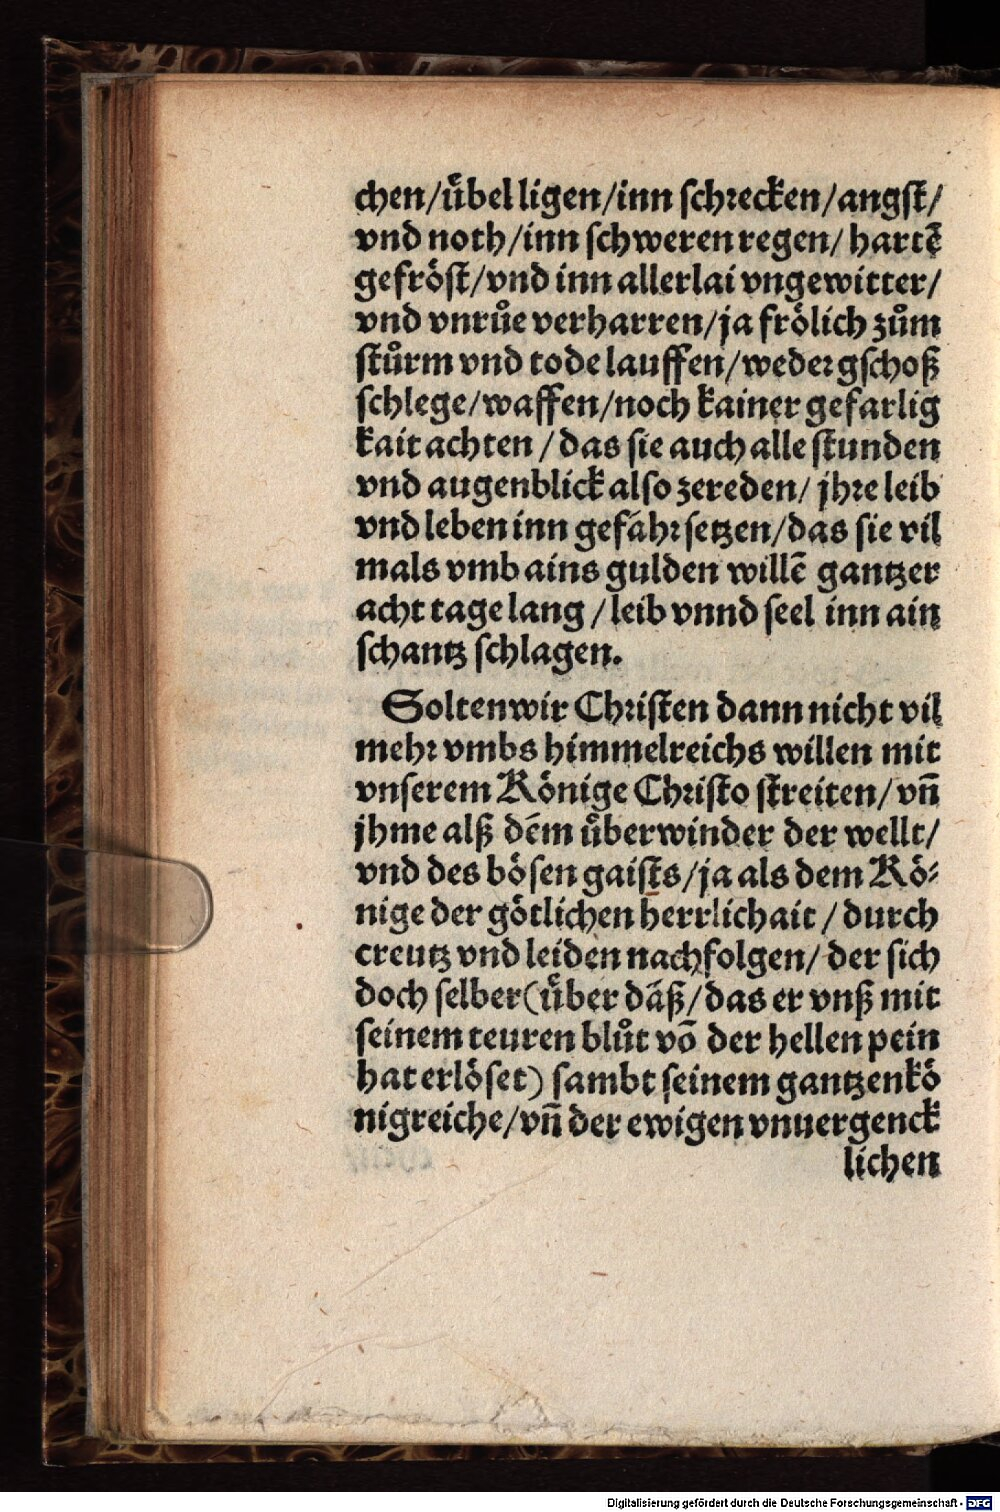 chen/uͤbel ligen/inn schrecken/angst/
vnd noth/inn schweren regen/ hartẽ
gefröst/vnd inn allerlai vngewitter/
vnd vnruͤe verharren/ja frölich zuͦm
stuͦrm vnd tode lauffen/weder gschoß
schlege/waffen/noch kainer gefarlig
kait achten / das sie auch alle stunden
vnd augenblick also zereden/ jhre leib
vnd leben inn gefahr setzen/das sie vil
mals vmb ains gulden willẽ gantzer
acht tage lang / leib vnnd seel inn ain
schantz schlagen.
Solten wir Christen dann nicht vil
mehr vmbs himmelreichs willen mit
vnserem Könige Christo streiten/ vñ
jhme alß dem uͤberwinder der wellt/
vnd des bösen gaists/ja als dem Kö⸗
nige der götlichen herrlichait / durch
creutz vnd leiden nachfolgen/ der sich
doch selber (uͤber däß/das er vnß mit
seinem teuren bluͦt võ der hellen pein
hat erlöset) sambt seinem gantzen kö
nigreiche/vñ der ewigen vnuergenck
lichen
Digitalisierung gefördert durch die Deutsche Forschungsgemeinschaft - DFG